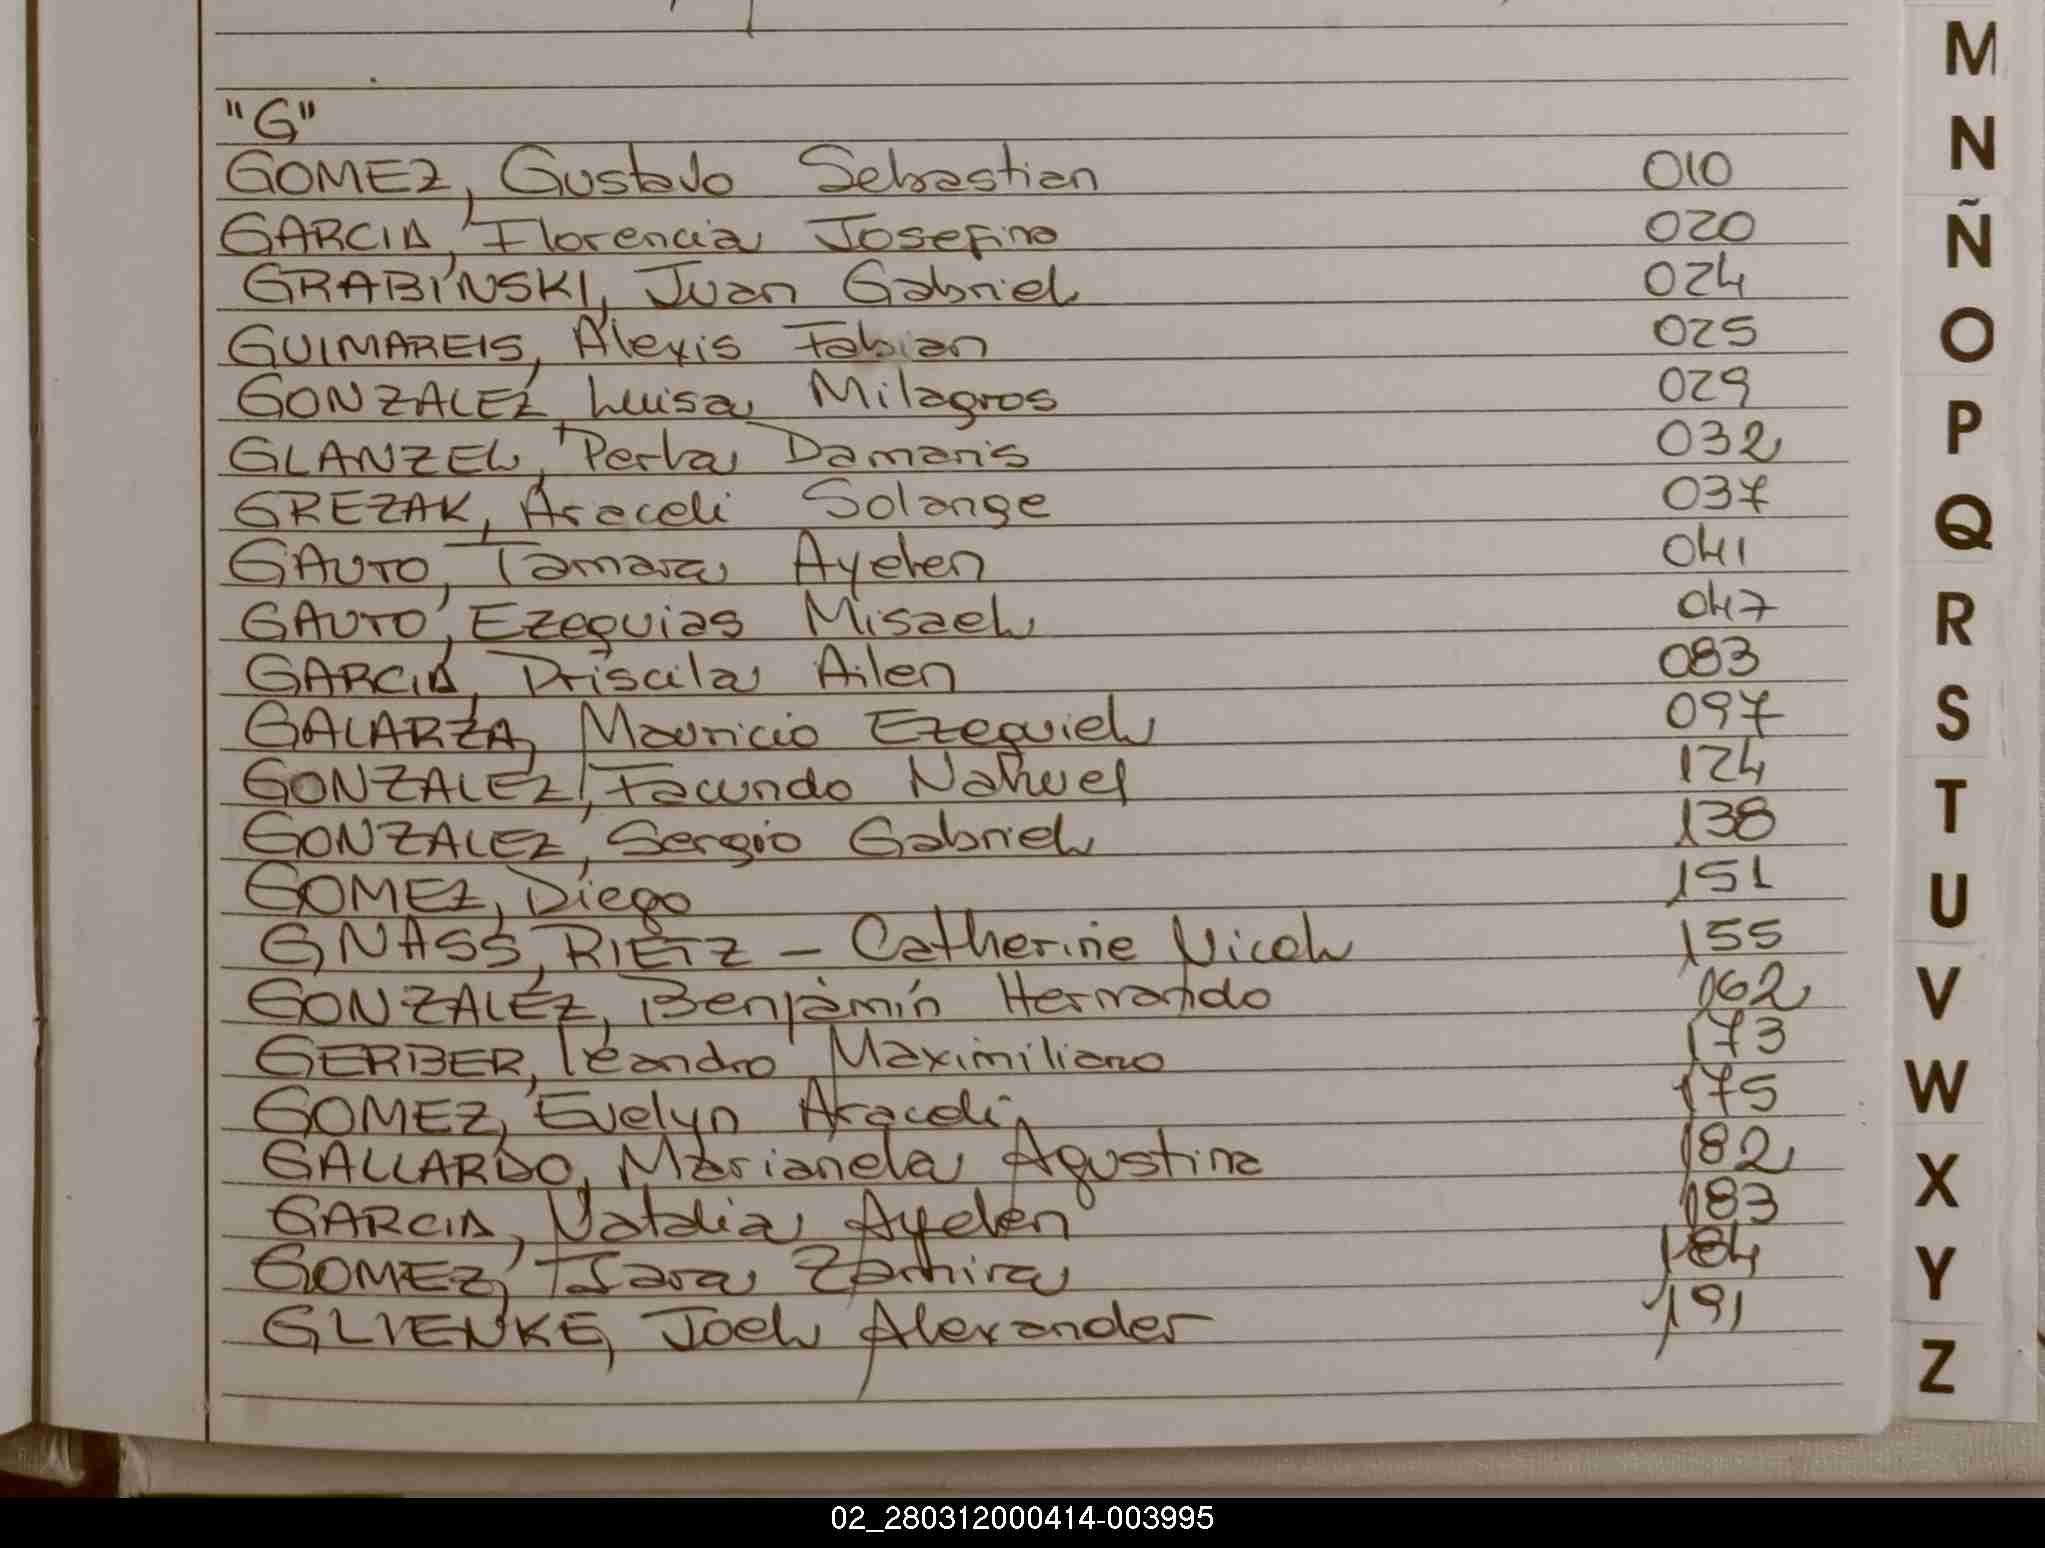 "G"
GOMEZ, Gustavo Sebastian 010
GARCIA, Florencia Josefina 020
GRABINSKI, Juan Gabriel 024
GUIMAREIS, Alexis Fabian 025
GONZALEZ Luisa Milagros 029
GLANZEL, Perla Damaris 032
GREZAK, Araceli Solange 037
GAUTO, Tamara Ayelen 041
GAUTO, Ezequias Misael 047
GARCIA, Priscila Ailen 083
GALARZA, Mauricio Ezequiel 097
GONZALEZ, Facundo Nahuel 124
GONZALEZ, Sergio Gabriel 138
GOMEZ, Diego 151
GNASS, RIETZ - Catherine Nicol 155
GONZALEZ, Benjamín Hernando 162
GERBER, leandro Maximiliano 173
GOMEZ, Evelyn Araceli 175
GALLARDO, Marianela Agustina 182
GARCIA, Natalia Ayelen 183
GOMEZ, Zamira 184
GLIENKE, Joel Alexander 191
M
N
Ñ
O
P
Q
R
S
T
U
V
W
X
Y
Z
02_280312000414-003995